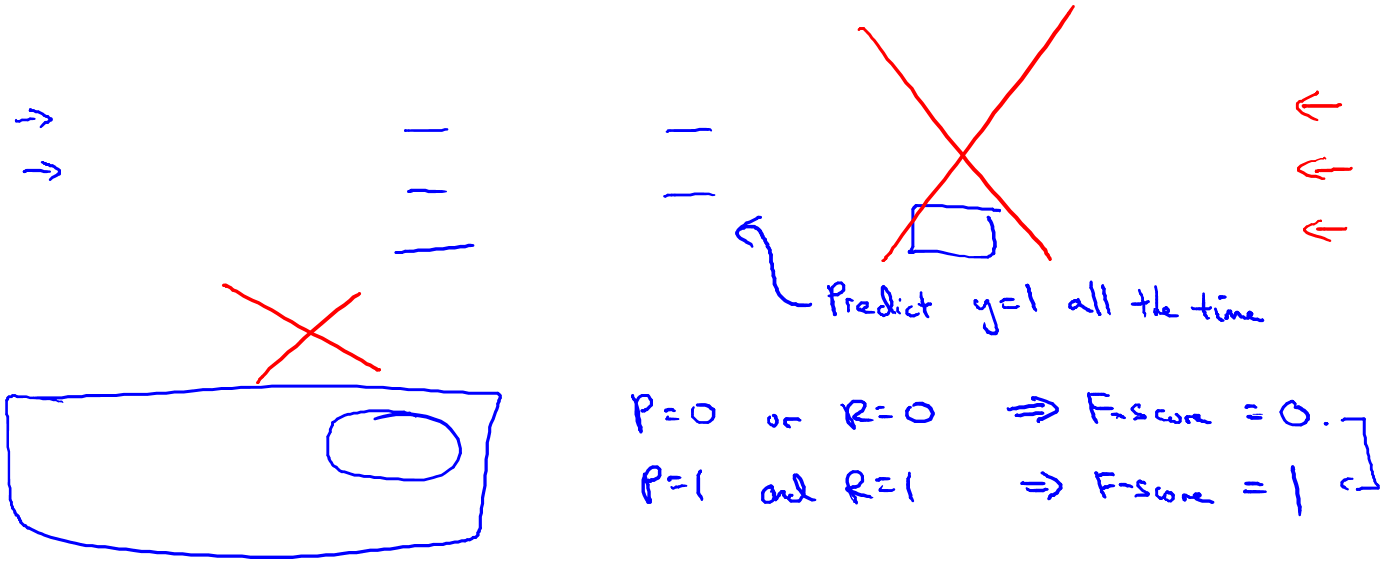 Predict y=1 all the time
P=0 or R=0 ⇒ F-score = 0.
P=1 and R=1 ⇒ F-score = 1